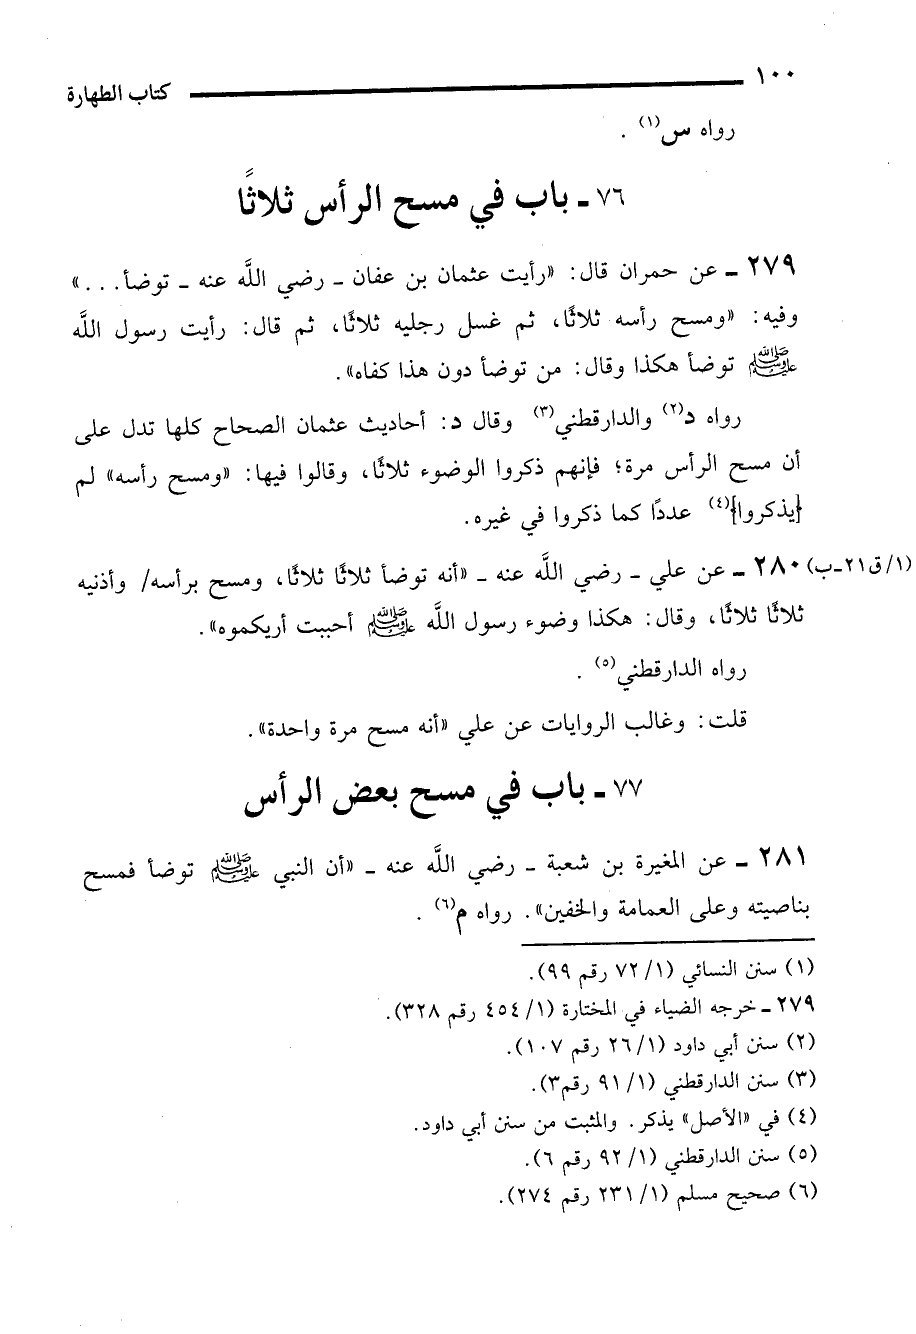 ١٠٠ كتاب الطهارة
رواه س(١) .
٧٦ ـ باب في مسح الرأس ثلاثًا
٢٧٩ ـ عن حمران قال: «رأيت عثمان بن عفان ـ رضي اللَّه عنه ـ توضأ...»
وفيه: «ومسح رأسه ثلاثًا، ثم غسل رجليه ثلاثًا، ثم قال: رأيت رسول اللَّه
ﷺ توضأ هكذا وقال: من توضأ دون هذا كفاه».
رواه د(٢) والدارقطني(٣) وقال د: أحاديث عثمان الصحاح كلها تدل على
أن مسح الرأس مرة؛ فإنهم ذكروا الوضوء ثلاثًا، وقالوا فيها: «ومسح رأسه» لم
{يذكروا}(٤) عددًا كما ذكروا في غيره.
(١/ق٢١-ب) ٢٨٠ ـ عن علي ـ رضي اللَّه عنه ـ «أنه توضأ ثلاثًا ثلاثًا، ومسح برأسه/ وأذنيه
ثلاثًا ثلاثًا، وقال: هكذا وضوء رسول اللَّه ﷺ أحببت أريكموه».
رواه الدارقطني(٥) .
قلت: وغالب الروايات عن علي «أنه مسح مرة واحدة».
٧٧ ـ باب في مسح بعض الرأس
٢٨١ ـ عن المغيرة بن شعبة ـ رضي اللَّه عنه ـ «أن النبي ﷺ توضأ فمسح
بناصيته وعلى العمامة والخفين». رواه م(٦) .
(١) سنن النسائي (١/ ٧٢ رقم ٩٩).
٢٧٩ ـ خرجه الضياء في المختارة (١/ ٤٥٤ رقم ٣٢٨).
(٢) سنن أبي داود (١/ ٢٦ رقم ١٠٧).
(٣) سنن الدارقطني (١/ ٩١ رقم٣).
(٤) في «الأصل» يذكر. والمثبت من سنن أبي داود.
(٥) سنن الدارقطني (١/ ٩٢ رقم ٦).
(٦) صحيح مسلم (١/ ٢٣١ رقم ٢٧٤).